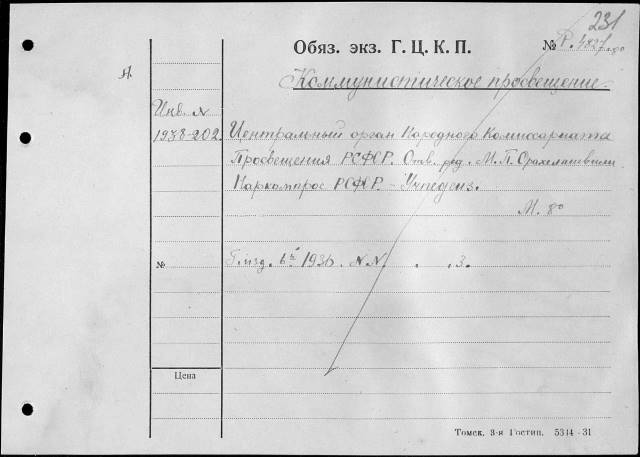 231
Обяз. экз. Г. Ц. К. П. № Р. 4827
Коммунистическое просвещение.
Инв. N
1938-202
Центральный орган Народного Комиссариата
Просвещения РСФСР. Отв. ред. М. П. Орахелашвили
Наркомпрос РСФСР - Учпедгиз.
М. 8°
№
Г. изд. 6й 1936. NN. . . 3.
Цена
Томск. 3-я Гостип. 5314-31